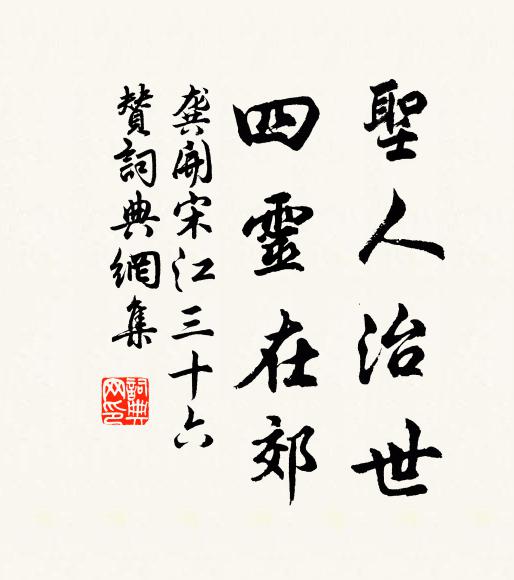 聖人治世
四靈在郊
龔開宋江三十六
贊詞典網集
詞典
网印